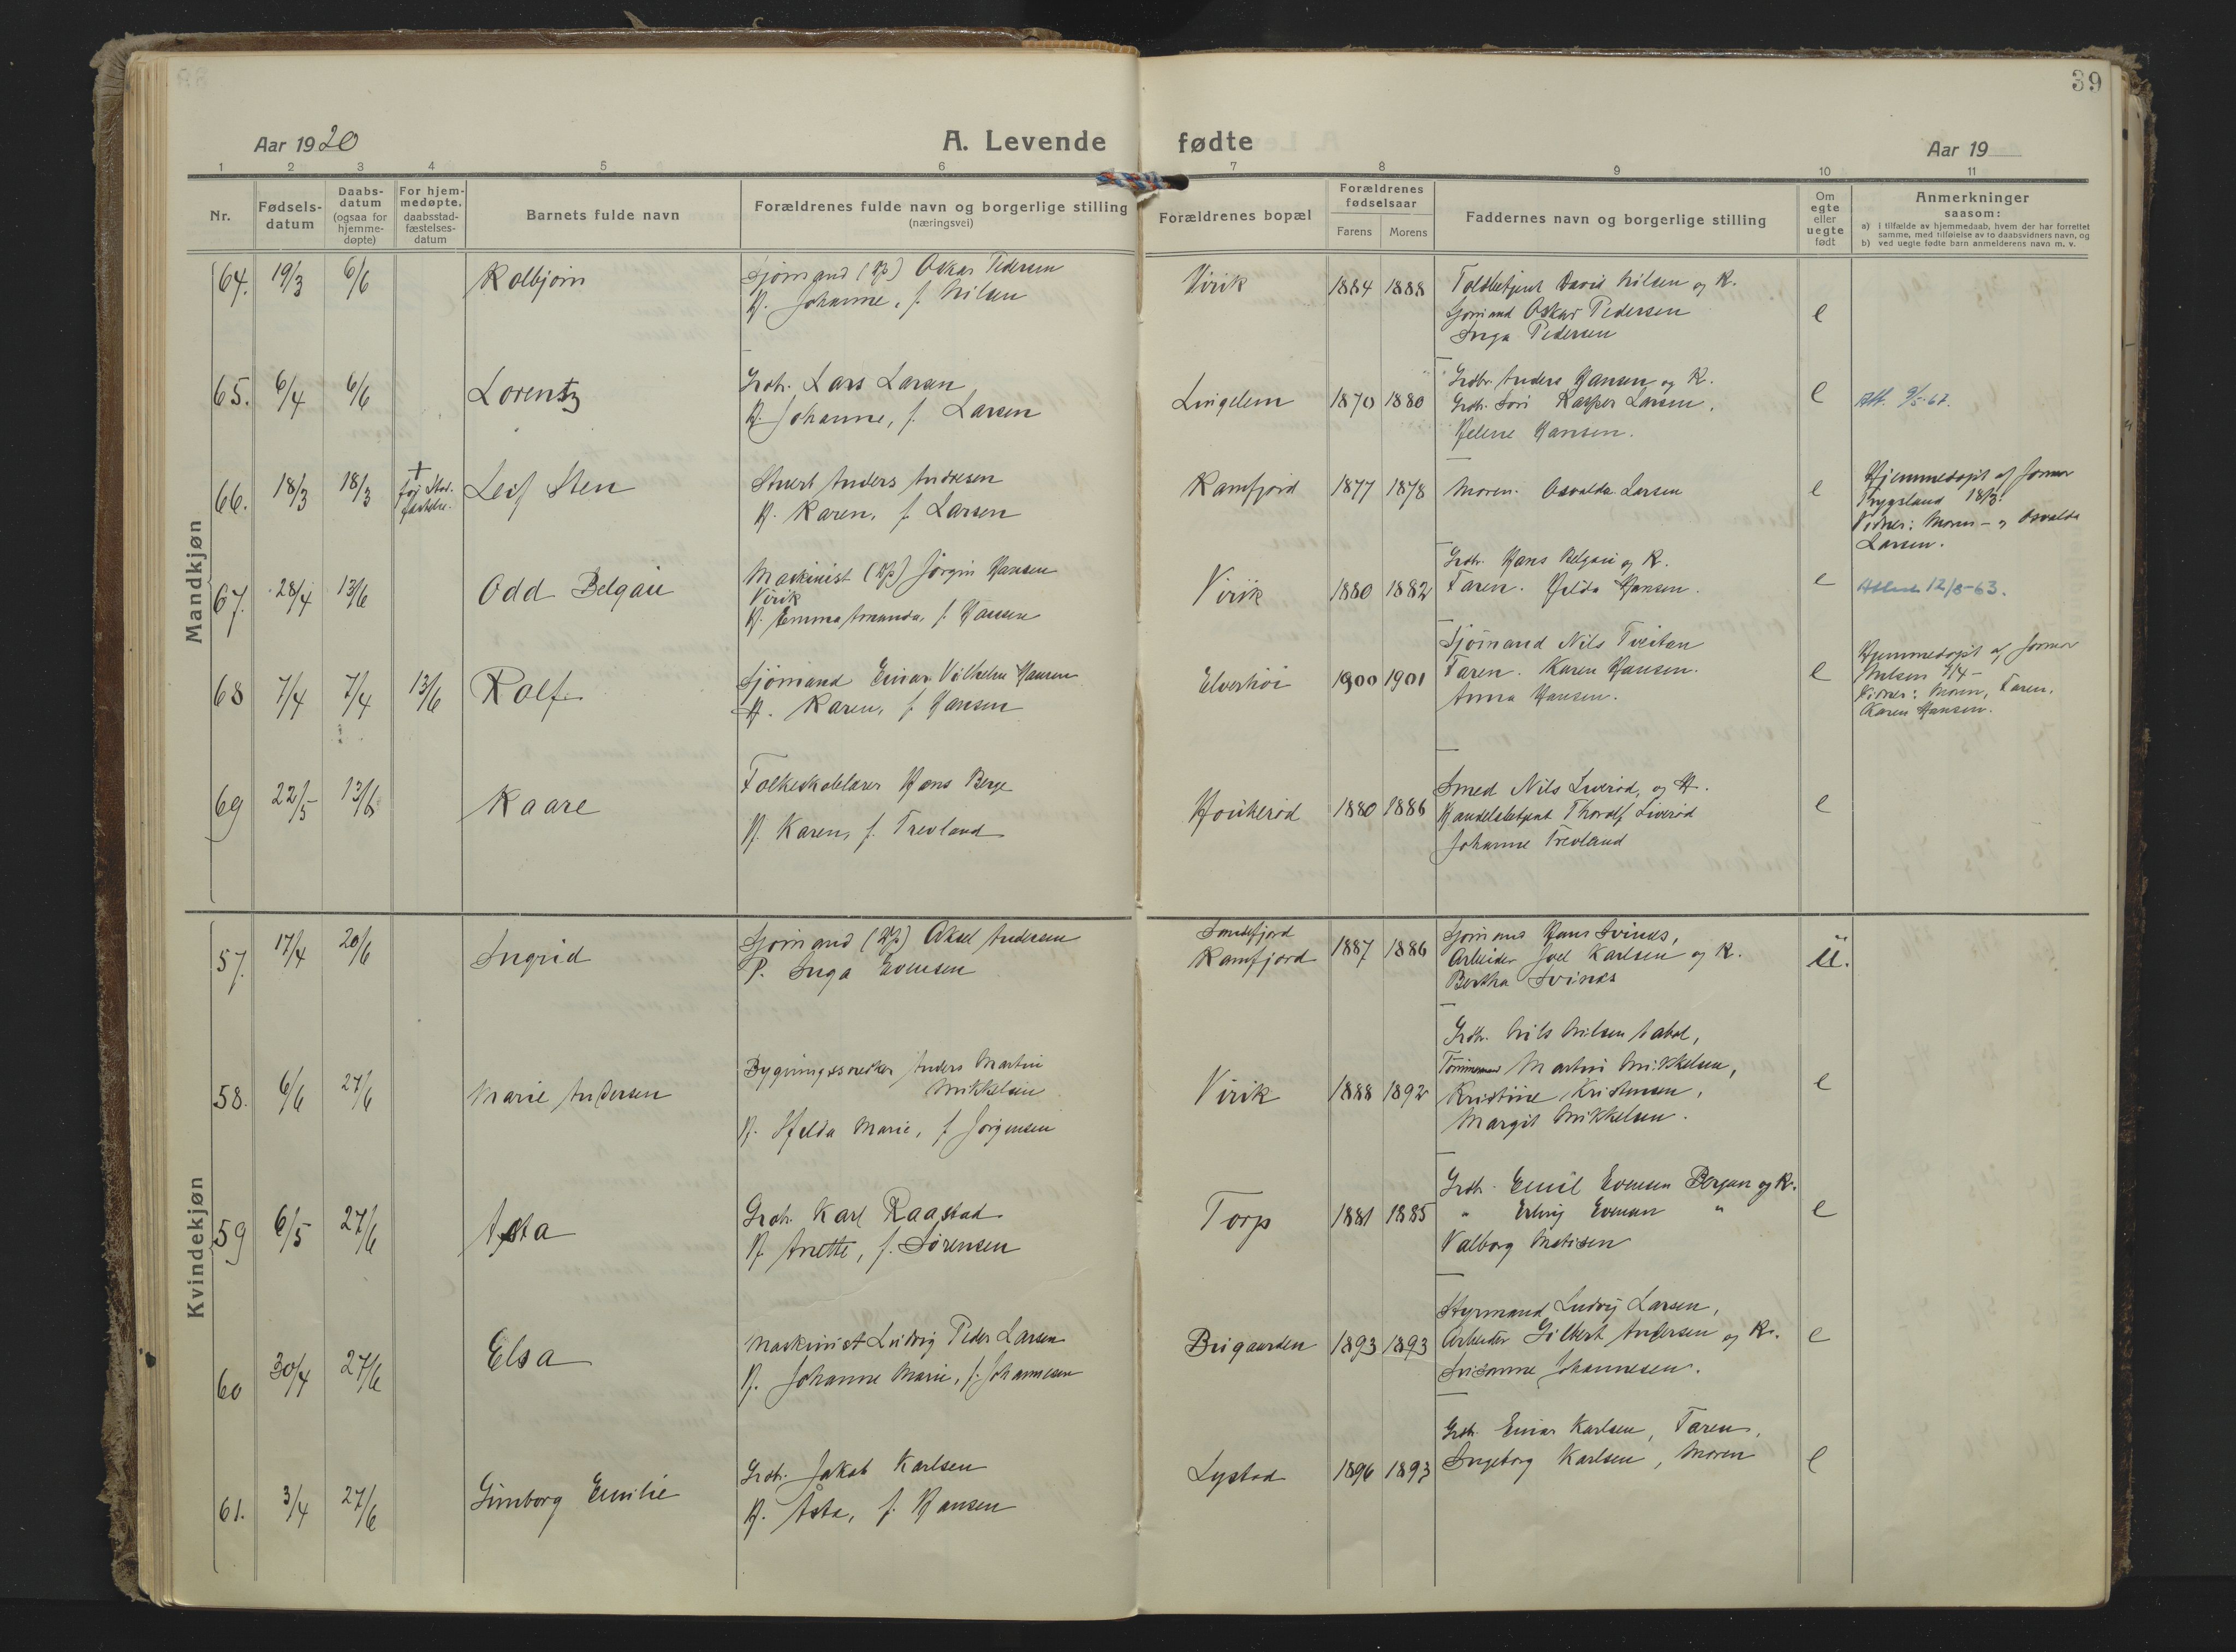 39
Aar 1920
A. Levende fødte
Aar 19
1 2 3 4 5 6 7 8 9 10 11
Nr.
Fødsels-
datum
Daabs-
datum
(ogsaa for
hjemme-
døpte)
For hjem-
medøpte.
daabsstad-
fæstelses-
datum
Barnets fulde navn
Forældrenes fulde navn og borgerlige stilling
(næringsvei)
Forældrenes bopæl
Forældrenes
fødselsaar
Farens Morens
Faddernes navn og borgerlige stilling
Om
egte
eller
uegte
født
Anmerkninger
saasom:
a) i tilfælde av hjemmedaab, hvem der har forrettet
samme, med tilføielse av to daabsvidners navn, og
b) ved uegte fødte barn anmelderens navn m. v.
Mandkjøn
64. 19/3 6/6 Kolbjørn
Sjømand Oskar Pedersen
H. Johanne, f. Nilsen
Virik 1884 1888
Toldbetjent David Nilsen og K.
Sjømand Oskar Pedersen
Inga Pedersen
e
65. 6/4 6/6 Lorentz
Grdbr. Lars Larsen
H. Johanne, f. Larsen
Lingelem 1870 1880
Grdbr. Anders Hansen og K.
Kasper Larsen,
Helene Hansen.
e
Att. 9/5-67.
66. 18/3 18/3
† før Stad-
fæstelse.
Leif Sten
Stuert Anders Andresen
H. Karen, f. Larsen
Kamfjord 1877 1878
Moren. Osvalda Larsen
e
Hjemmedøpt af Jormor
Trygsland 18/3.
Vidner: Moren - og Osvalda
Larsen.
67. 28/4 13/6 Odd Belgau
Maskinist Jørgin Hansen
Virik
H. Emma Amanda, f. Hansen
Virik 1880 1882
Grdbr. Hans Belgau og K.
Faren. Hilda Hansen.
e
Attest 12/8-63.
68 7/4 7/4 13/6 Rolf
Sjømand Einar Vilhelm Hansen
H. Karen, f. Hansen
Elverhöi 1900 1901
Sjømand Nils Tveitan
Faren. Karen Hansen.
Anna Hansen.
e
Hjemmedøpt af Jormor
Nilsen 7/4 -
Vidner: Moren, Faren,
Karen Hansen.
69 22/5 13/6 Kaare
Folkeskolelærer Hans Berge
H. Karen, f. Trevland
Haukerød 1880 1886
Smed Nils Liverød, og H.
Handelsbetjent Thoralf Liverød
Johanne Trevland
e
Kvindekjøn
57. 17/4 20/6 Ingrid
Sjømand Aksel Andersen
P. Inga Evensen
Sandefjord
Kamfjord 1887 1886
Sjømand Hans Svinås,
Arbeider Joel Karlsen og K.
Bertha Svinås
u.
58. 6/6 27/6 Marie Andersen
Bygningssnedker Anders Martin
Mikkelsen
H. Hjelda Marie, f. Jørgensen
Virik 1888 1892
Grdbr. Nils Nilsen
Tømmermand Martin Mikkelsen,
Kristine Kristensen,
Margit Mikkelsen.
e
59 6/5 27/6 Asta
Grdbr. Karl Raastad
H. Anette, f. Sørensen
Torp 1881 1885
Grdbr. Emil Evensen Bergan og K.
" Erling Evensen "
Valborg Matisen
e
60 30/4 27/6 Elsa
Maskinist Ludvig Peder Larsen
H. Johanne Marie, f. Johannesen
Brigaarden 1893 1893
Styrmand Ludvig Larsen,
Arbeider Gilbert Andersen og K.
Susanne Johannesen.
e
61. 3/4 27/6 Gunborg Emilie
Grdbr. Jakob Karlsen
H. Asta, f. Hansen
Lystad 1896 1893
Grdbr. Einar Karlsen, Faren,
Ingeborg Karlsen, Moren
e